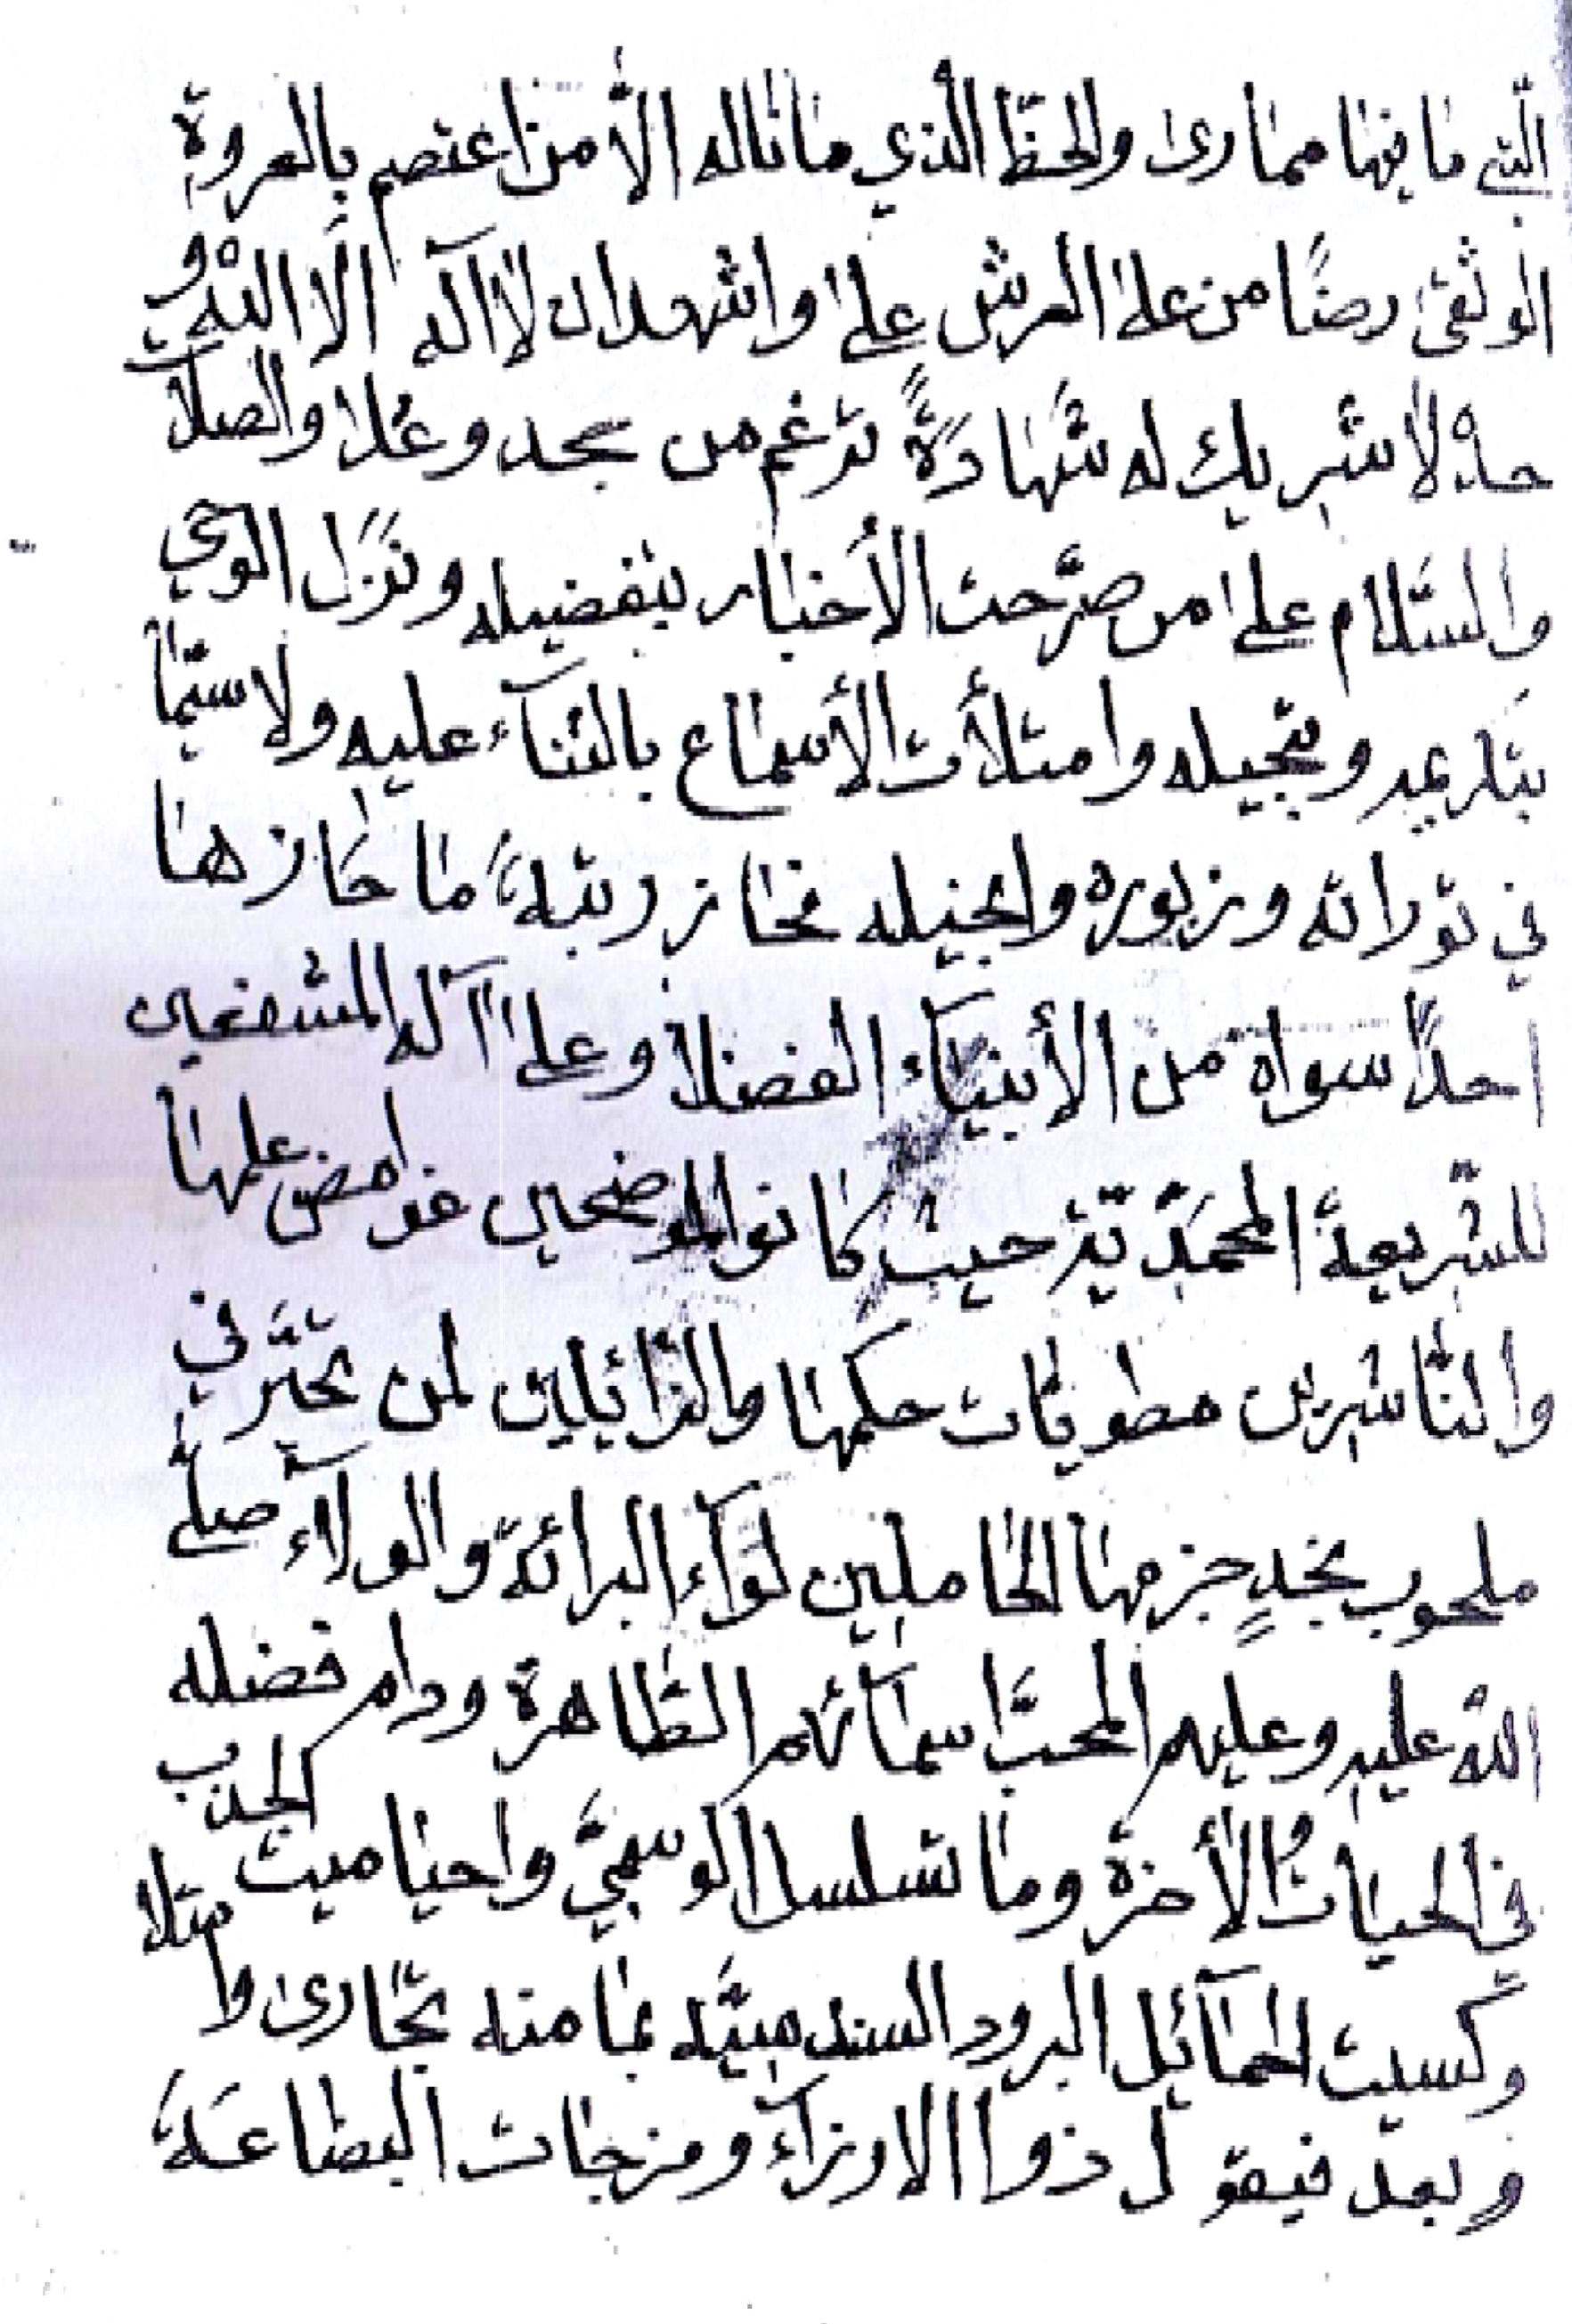 الّتي ما فيها ممارى والحظّ الّذي ما ناله الّا من اعتصم بالعروة
الوثقى رضًا من على العرش على واشهد ان لا آله الّا الله و
حده لا شريك له شهادةً ترغم من جحد وغلا والصلاة
والسّلام على من صرّحت الأخبار بتفضيله ونَزَل الوحي
بتكريمه وتبجيله وامتلأت الأسماع بالثنآء عليه ولا سيّما
في توراته وزبوره وانجيله فحاز رتبة ما حازها
احدًا سواه من الأنبيآء الفضلا وعلى آله المشفعين
للشّريعة المحمّديّة حيث كانوا الموضحين غوامض علمها
والنّاشرين مطويّات حكمها والذّائبين لمن تحيّر في
ملحوب جزمها الحاملين لوآء البرائة والولاء صلّى
الله عليه وعليهم اسمآئهم الطّاهرة ودام فضله
في الحيات الأخرة وما تسلسل الوسميّ واحيا ميت الجدب
وكسيت الخمآئل البرود السندسيّه بما منه تجارى وامتلا
وبعد فيقول ذوا الارزآء ومزجات البضاعة